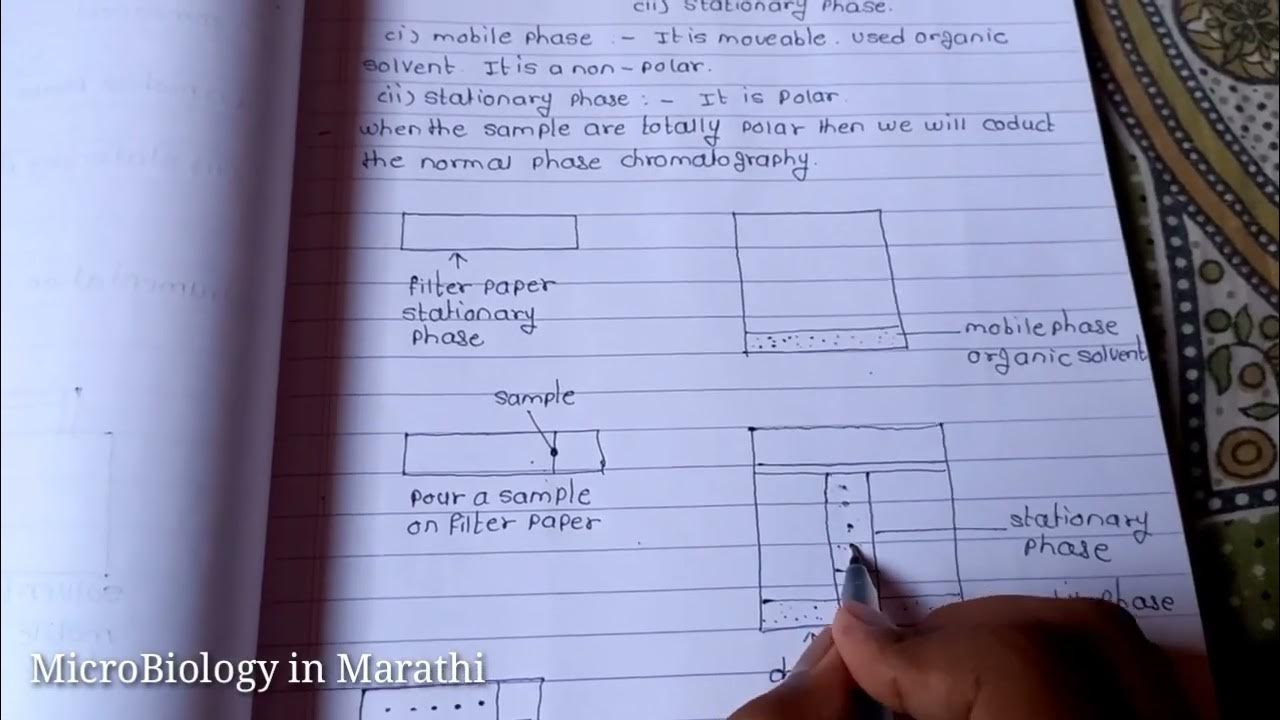 (ii) stationary phase.
(i) mobile phase :- It is moveable. used organic
solvent. It is a non-polar.
(ii) stationary phase :- It is Polar.
- when the sample are totally polar then we will coduct
the normal phase chromatography.
filter paper
stationary
phase
mobile phase
organic solvent
sample
pour a sample
on filter paper
stationary
phase
phase
MicroBiology in Marathi